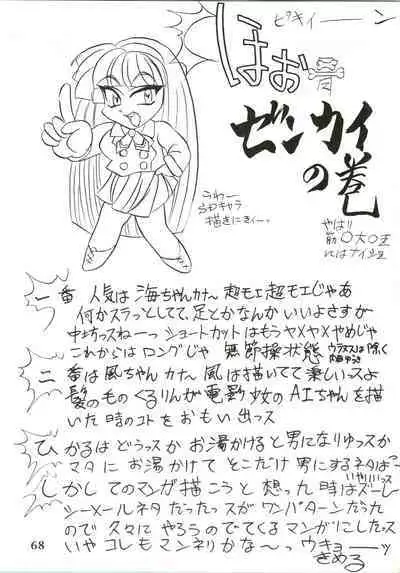 ピキィーーン
ほお骨
ゼンカイ
の巻
うわー
SDキャラ
描きにきぃー。
やは!!
筋〇大〇王
にはナイショ
一番 人気は 海ちゃんカナ〜 超モエ超モエじゃあ
何かスラっとして、足とかなんか いいよさすが
中坊っスねーっ ショートカットはもうヤメヤメやめじゃ
これからは ロングじゃ 無節操状態
二番は風ちゃん カナ〜 風は描いてて楽しいっスよ
髪のものくるりんが 電影少女のAIちゃんを描
いた時のコトを おもい出っス
ひかるは どうっスか お湯かけると男になりゅっスか
マタに お湯かけて そこだけ 男にするネタは"
しかし てのマンガ描こうと 想った時はズーレ
シーメールネタ だったっスが ワンパターンだった
ので 久々に やろうのでてくる マンガにしたっス
いや コレも マンネリかな〜っ ウキョーーッ
きめる
68